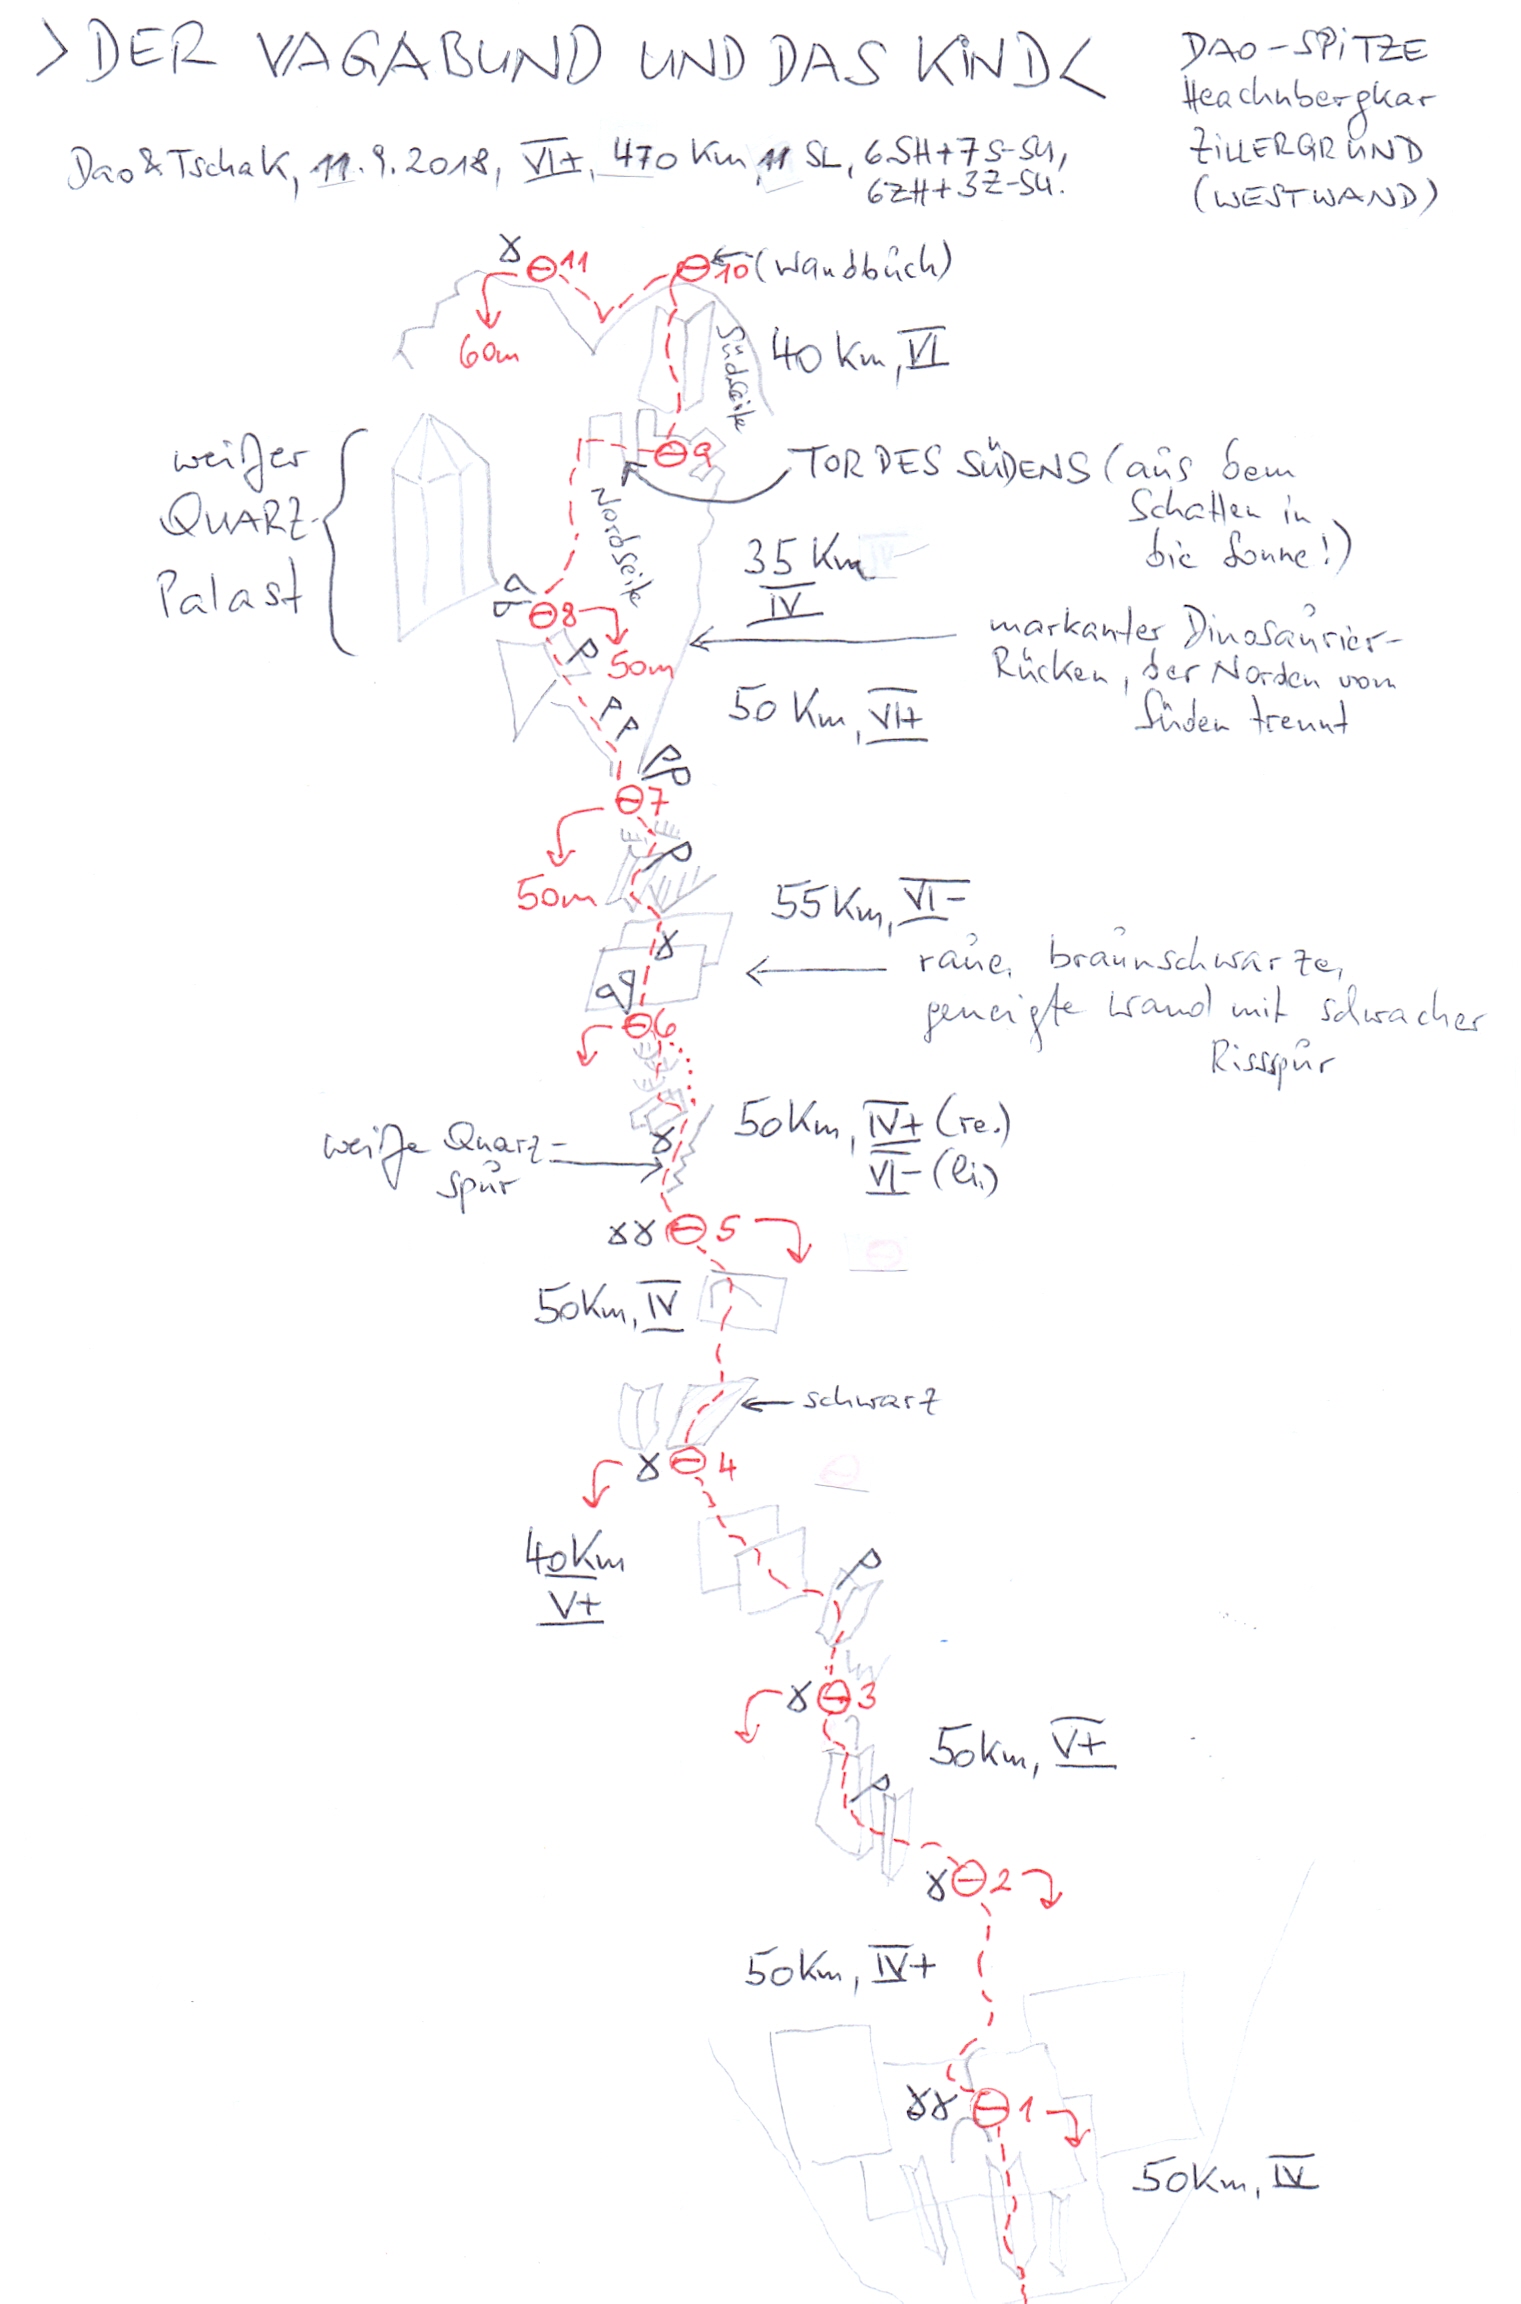 >DER VAGABUND UND DAS KIND<
DAO-SPITZE
Heachnbergkar
ZILLERGRUND
(WESTWAND)
Dao & Tschak, 11.9.2018, VI+, 470 Km, 11 SL, 6SH+7S-SU,
6ZH+3Z-SU.
11
10 (Wandbuch)
60m
Südseite
40 Km, VI
9
weißer
QUARZ-
Palast
TOR DES SÜDENS (aus dem
Schatten in
die Sonne!)
Nordseite
35 Km
IV
8
50m
markanter Dinosaurier-
Rücken, der Norden vom
Süden trennt
50 Km, VI+
7
50m
55 Km, VI-
raue, braunschwarze,
geneigte Wand mit schwacher
Rissspur
6
50Km, IV+ (re.)
VI- (li.)
weiße Quarz-
spur
5
50Km, IV
schwarz
4
40Km
V+
3
50Km, V+
2
50Km, IV+
1
50Km, IV